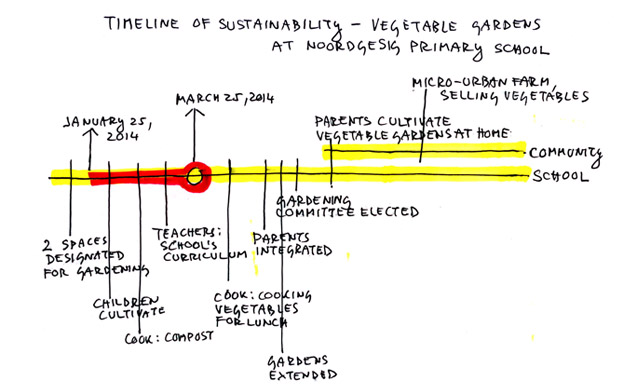 TIMELINE OF SUSTAINABILITY – VEGETABLE GARDENS
AT NOORDGESIG PRIMARY SCHOOL
MICRO-URBAN FARM,
SELLING VEGETABLES
MARCH 25, 2014
JANUARY 25,
2014
PARENTS CULTIVATE
VEGETABLE GARDENS AT HOME
COMMUNITY
SCHOOL
GARDENING
COMMITTEE ELECTED
TEACHERS:
SCHOOL'S
CURRICULUM
PARENTS
INTEGRATED
2 SPACES
DESIGNATED
FOR GARDENING
CHILDREN
CULTIVATE
COOK: COOKING
VEGETABLES
FOR LUNCH
COOK: COMPOST
GARDENS
EXTENDED